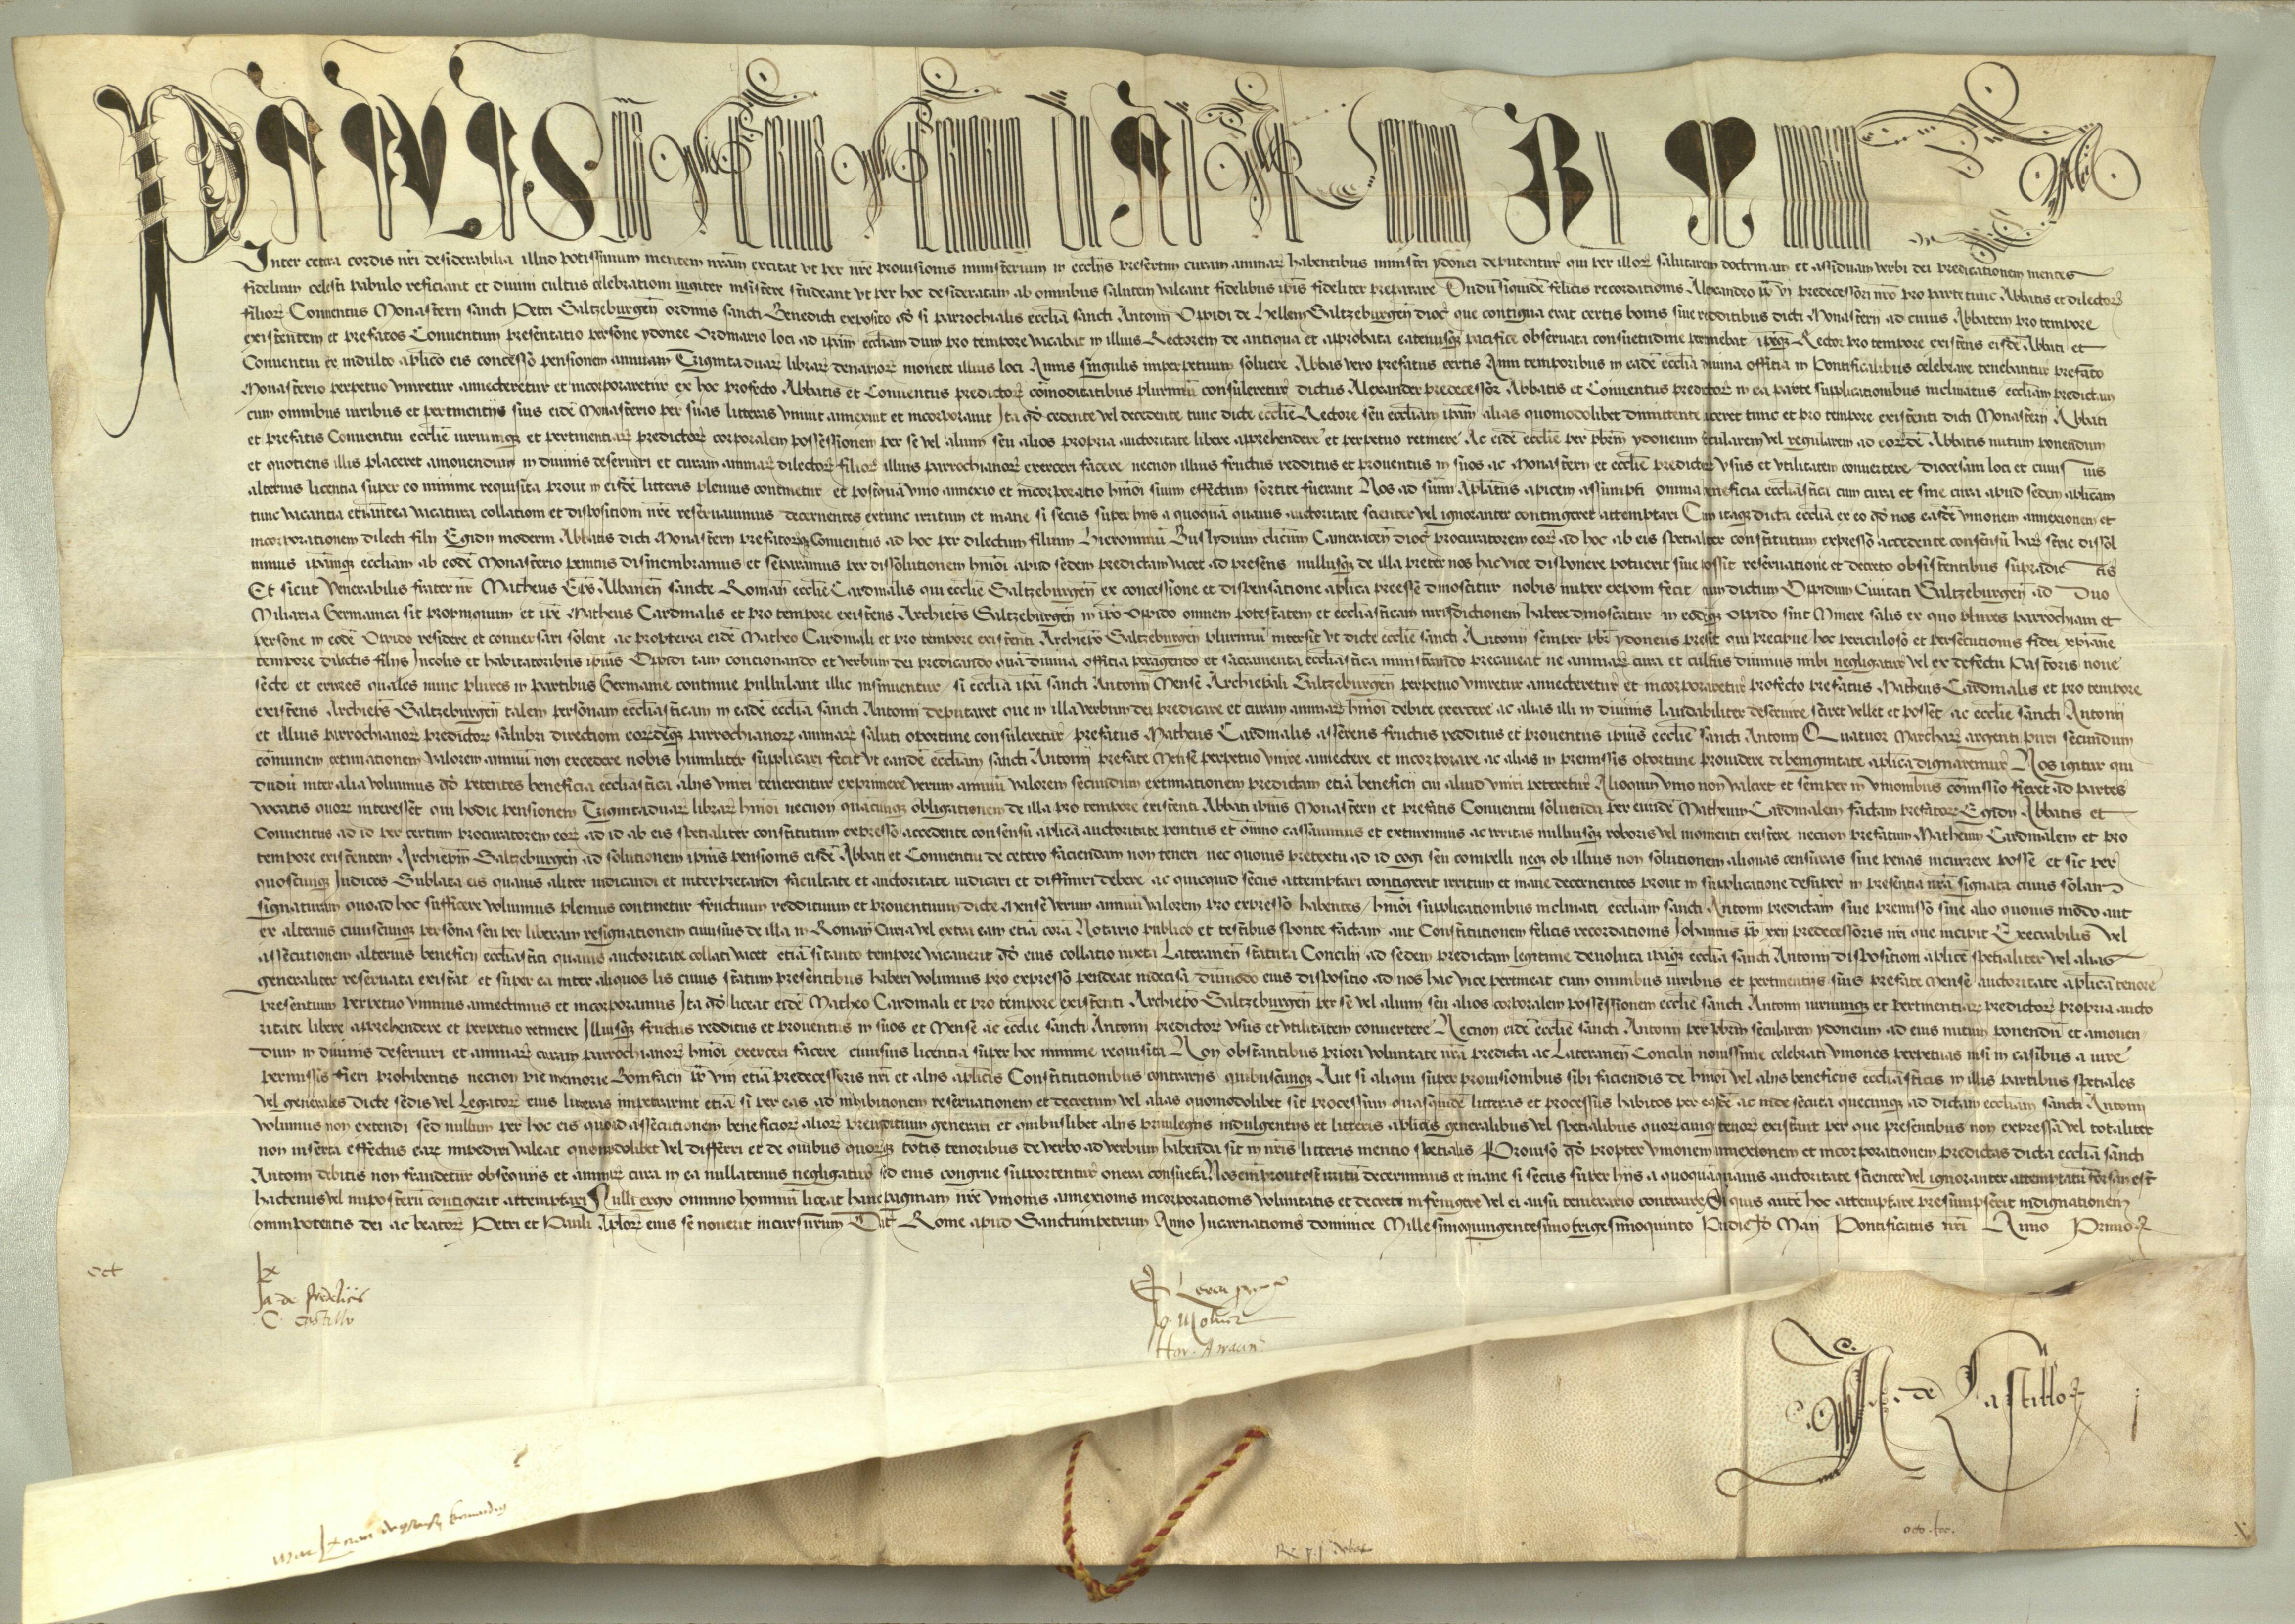 PAVLVS
Inter cetera cordis nri desiderabilia illud potissimum mentem nram excitat ut per nre provisionis ministerium in ecclijs presertim curam animar habentibus ministri ydonei deputentur qui per illor salutarem doctrinam et assiduam verbi dei predicationem mentes
fidelium celesti pabulo reficiant et divini cultus celebrationi iugiter insistere studeant ut per hoc desideratam ab omnibus salutem valeant fidelibus ipis fideliter preparare Dudu siquidem felicis recordationis Alexandro pp vi predecessori nro pro parte tunc Abbatis et dilector
filior Conventus Monasterij sancti Petri Saltzeburgen ordinis sancti Benedicti exposito qd si parrochialis ecclia sancti Antonij Oppidi de Hellem Saltzeburgen dioc que contigua erat certis bonis sive redditibus dicti Monasterij ad cuius Abbatem pro tempore
existentem et prefatos Conventum presentatio persone ydonee Ordinario loci ad ipam eccliam dum pro tempore vacabat in illius Rectorem de antiqua et approbata eatenusq pacifice observata consuetudine pertinebat ipeq Rector pro tempore existens eisde Abbati et
Conventui ex indulto aplico eis concesso pensionem annuam Trigintaduar librar denarior monete illius loci Annis singulis imperpetuum solvere Abbas vero prefatus certis Anni temporibus in eade ecclia divina officia in Pontificalibus celebrare tenebantur prefato
Monasterio perpetuo uniretur annecteretur et incorporaretur ex hoc profecto Abbatis et Conventus predictor comoditatibus plurimu consuleretur dictus Alexander predecessor Abbatis et Conventus predictor in ea parte supplicationibus inclinatus eccliam predictam
cum omnibus iuribus et pertinentijs suis eide Monasterio per suas litteras univit annexuit et incorporavit Ita qd cedente vel decedente tunc dicte ecclie Rectore seu eccliam ipam alias quomodolibet dimittente liceret tunc et pro tempore existenti dicti Monasterij Abbati
et prefatis Conventui ecclie iuriumq et pertinentiar predictor corporalem possessionem per se vel alium seu alios propria auctoritate libere apprehendere et perpetuo retinere Ac eide ecclie per pbrm ydoneum secularem vel regularem ad eorde Abbatis nutum ponendum
et quotiens illis placeret amovendum in divinis deserviri et curam animar dilector filior illius parrochianor exerceri facere necnon illius fructus redditus et proventus in suos ac Monasterij et ecclie predictor usus et utilitatem convertere diocesani loci et cuiusvis
alterius licentia super eo minime requisita prout in eisde litteris plenius continetur et postqua unio annexio et incorporatio hmoi suum effectum sortite fuerant Nos ad summi Aplatus apicem assumpti omnia beneficia ecclesiastica cum cura et sine cura apud sedem aplicam
tunc vacantia et inantea vacatura collationi et dispositioni nre reservavimus decernentes extunc irritum et inane si secus super hijs a quoqua quavis auctoritate scienter vel ignoranter contingeret attemptari Cum itaq dicta ecclia ex eo qd nos easde unionem annexionem et
incorporationem dilecti filij Egidij moderni Abbatis dicti Monasterij prefatorq Conventus ad hoc per dilectum filium Hieronimu Buslydium clicum Cameracen dioc procuratorem eor ad hoc ab eis specialiter constitutum expresso accedente consensu har serie dissol
vimus ipamq eccliam ab eode Monasterio penitus dismembravimus et separavimus per dissolutionem hmoi apud sedem predictam vacet ad presens nullusq de illa preter nos hac vice disponere potuerit sive possit reservatione et decreto obsistentibus supradictis
Et sicut Venerabilis frater nr Matheus Eps Albanen sancte Roman ecclie Cardinalis qui ecclie Saltzeburgen ex concessione et dispensatione aplica preesse dinoscitur nobis nuper exponi fecit cum dictum Oppidum Civitati Saltzeburgen ad Duo
Miliaria Germanica sit propinquum et ipe Matheus Cardinalis et pro tempore existens Archieps Saltzeburgen in ipo Oppido omnem potestatem et ecclesiasticam iurisdictionem habere dinoscatur in eodeq Oppido sint Minere salis ex quo plures parrochiam et
persone in eode Oppido residere et conversari solent ac propterea eide Matheo Cardinali et pro tempore existenti Archiepo Saltzeburgen plurimu intersit ut dicte ecclie sancti Antonij semper pbr ydoneus presit qui precipue hoc periculoso et persecutionis fidei xpiane
tempore dilectis filijs Incolis et habitatoribus ipius Oppidi tam concionando et verbum dei predicando qua divina officia peragendo et sacramenta ecclesiastica ministrando precaveat ne animar cura et cultus divinus inibi negligatur vel ex defectu Pastoris nove
secte et errores quales nunc plures in partibus Germanie continue pullulant illic insinuentur si ecclia ipa sancti Antonij Mense Archiepali Saltzeburgen perpetuo uniretur annecteretur et incorporaretur profecto prefatus Matheus Cardinalis et pro tempore
existens Archieps Saltzeburgen talem personam ecclesiasticam in eade ecclia sancti Antonij deputaret que in illa verbum dei predicare et curam animar hmoi debite exercere ac alias illi in divinis laudabiliter deservire sciret vellet et posset ac ecclie sancti Antonij
et illius parrochianor predictor salubri directioni eordeq parrochianor animar saluti oportune consuleretur prefatus Matheus Cardinalis asserens fructus redditus et proventus ipius ecclie sancti Antonij Quatuor Marchar argenti puri secundum
comunem extimationem valorem annuu non excedere nobis humiliter supplicari fecit ut eande eccliam sancti Antonij prefate Mense perpetuo unire annectere et incorporare ac alias in premissis oportune providere de benignitate aplica dignaremur Nos igitur qui
dudu inter alia volumus qd petentes beneficia ecclesiastica alijs uniri tenerentur exprimere verum annuu valorem secundum extimationem predictam etia beneficij cui aliud uniri peteretur Alioquin unio non valeret et semper in unionibus comissio fieret ad partes
vocatis quor interesset qui hodie pensionem Trigintaduar librar hmoi necnon quacunq obligationem de illa pro tempore existenti Abbati ipius Monasterij et prefatis Conventui solvenda per eunde Matheum Cardinalem factam prefator Egidij Abbatis et
Conventus ad id per certum procuratorem eor ad id ab eis specialiter constitutum expresso accedente consensu aplica auctoritate penitus et omnino cassavimus et extinximus ac irritas nulliusq roboris vel momenti existere necnon prefatum Matheum Cardinalem et pro
tempore existentem Archiepm Saltzeburgen ad solutionem ipius pensionis eisde Abbati et Conventui de cetero faciendam non teneri nec quovis pretextu ad id cogi seu compelli neq ob illius non solutionem aliquas censuras sive penas incurrere posse et sic per
quoscunq Iudices Sublata eis quavis aliter iudicandi et interpretandi facultate et auctoritate iudicari et diffiniri debere ac quicquid secus attemptari contigerit irritum et inane decernentes prout in supplicatione desuper in presentia nra signata cuius solam
signaturam quoad hoc sufficere volumus plenius continetur fructuum reddituum et proventuum dicte Mense verum annuu valorem pro expresso habentes hmoi supplicationibus inclinati eccliam sancti Antonij predictam sive premisso sive alio quovis modo aut
ex alterius cuiuscunq persona seu per liberam resignationem cuiusvis de illa in Roman Curia vel extra eam etia cora Notario publico et testibus sponte factam aut Constitutionem felicis recordationis Johannis pp xxij predecessoris nri que incipit Execrabilis vel
assecutionem alterius beneficij ecclesiastici quavis auctoritate collati vacet etia si tanto tempore vacaverit qd eius collatio iuxta Lateranen statuta Concilij ad sedem predictam legitime devoluta ipaq ecclia sancti Antonij dispositioni aplice specialiter vel alias
generaliter reservata existat et super ea inter aliquos lis cuius statum presentibus haberi volumus pro expresso pendeat indecisa dummodo eius dispositio ad nos hac vice pertineat cum omnibus iuribus et pertinentijs suis prefate Mense auctoritate aplica tenore
presentium perpetuo unimus annectimus et incorporamus Ita qd liceat eide Matheo Cardinali et pro tempore existenti Archiepo Saltzeburgen per se vel alium seu alios corporalem possessionem ecclie sancti Antonij iuriumq et pertinentiar predictor propria aucto
ritate libere apprehendere et perpetuo retinere Illiusq fructus redditus et proventus in suos et Mense ac ecclie sancti Antonij predictor usus et utilitatem convertere Necnon eide ecclie sancti Antonij per pbrm secularem ydoneum ad eius nutum ponendu et amoven
dum in divinis deserviri et animar curam parrochianor hmoi exerceri facere cuiusvis licentia super hoc minime requisita Non obstantibus priori voluntate nra predicta ac Lateranen Concilij novissime celebrati uniones perpetuas nisi in casibus a iure
permissis fieri prohibentis necnon pie memorie Bonifacij pp viij etia predecessoris nri et alijs aplicis Constitutionibus contrarijs quibuscunq Aut si aliqui super provisionibus sibi faciendis de hmoi vel alijs beneficijs ecclesiasticis in illis partibus speciales
vel generales dicte sedis vel Legator eius litteras impetrarint etia si per eas ad inhibitionem reservationem et decretum vel alias quomodolibet sit processum quasquide litteras et processus habitos per easde ac inde secuta quecunq ad dictam eccliam sancti Antonij
volumus non extendi sed nullum per hoc eis quoad assecutionem beneficior alior preiudicium generari et quibuslibet alijs privilegijs indulgentijs et litteris aplicis generalibus vel specialibus quorcunq tenor existant per que presentibus non expressa vel totaliter
non inserta effectus ear impediri valeat quomodolibet vel differri et de quibus quorq totis tenoribus de verbo ad verbum habenda sit in nris litteris mentio specialis Proviso qd propter unionem annexionem et incorporationem predictas dicta ecclia sancti
Antonij debitis non fraudetur obsequijs et animar cura in ea nullatenus negligatur sed eius congrue supportentur onera consueta Nos em prout est irritu decernimus et inane si secus super hijs a quoqua quavis auctoritate scienter vel ignoranter attemptatu forsan est
hactenus vel imposteru contigerit attemptari Nulli ergo omnino hominu liceat hanc paginam nre unionis annexionis incorporationis voluntatis et decreti infringere vel ei ausu temerario contraire Si quis aute hoc attemptare presumpserit indignationem
omnipotentis dei ac beator Petri et Pauli Aplor eius se noverit incursurum Dat Rome apud Sanctumpetrum Anno Incarnationis dominice Millesimoquingentesimotrigesimoquinto Pridie Maij Pontificatus nri Anno Primo
oct
C. Castillo
A. de Castillo